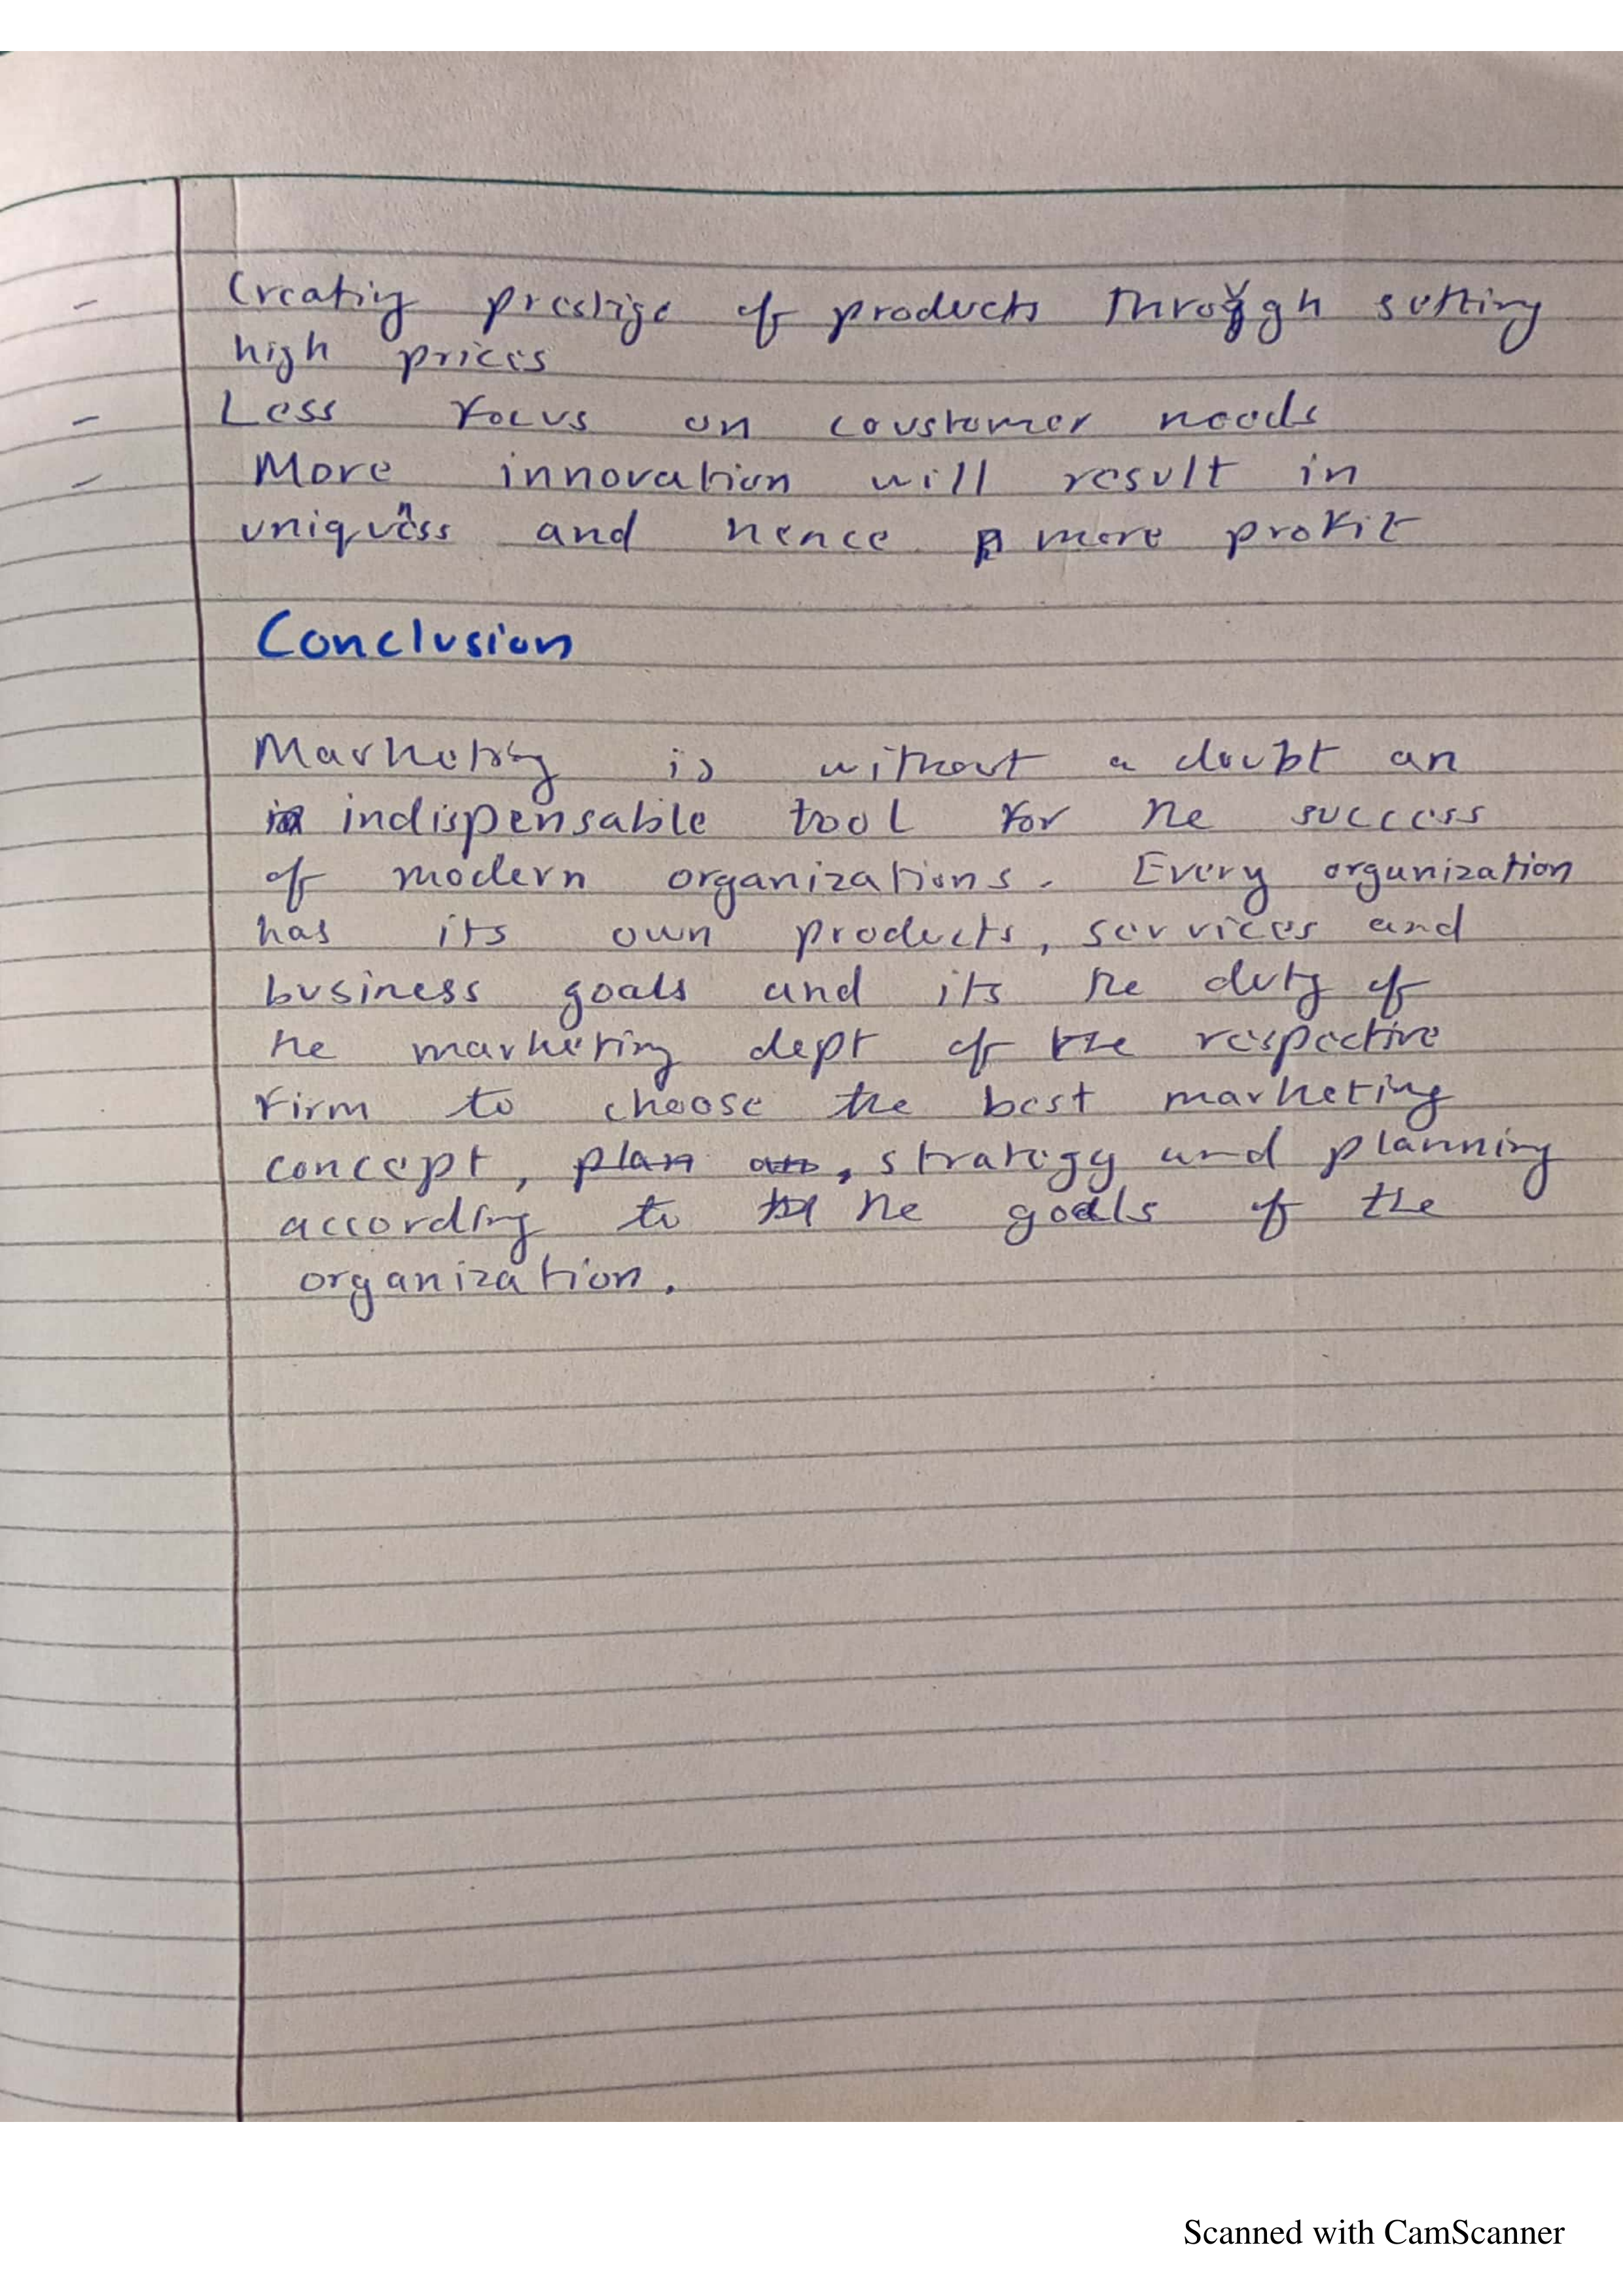 - Creating prestige of products through setting
high prices
- Less focus on coustomer needs
- More innovation will result in
uniquness and hence more profit
Conclusion
Marketing is without a doubt an
indispensable tool for the success
of modern organizations. Every organization
has its own products, services and
business goals and its the duty of
the marketing dept of the respective
firm to choose the best marketing
concept, plan an, strategy and planning
according to the goals of the
organization.
Scanned with CamScanner